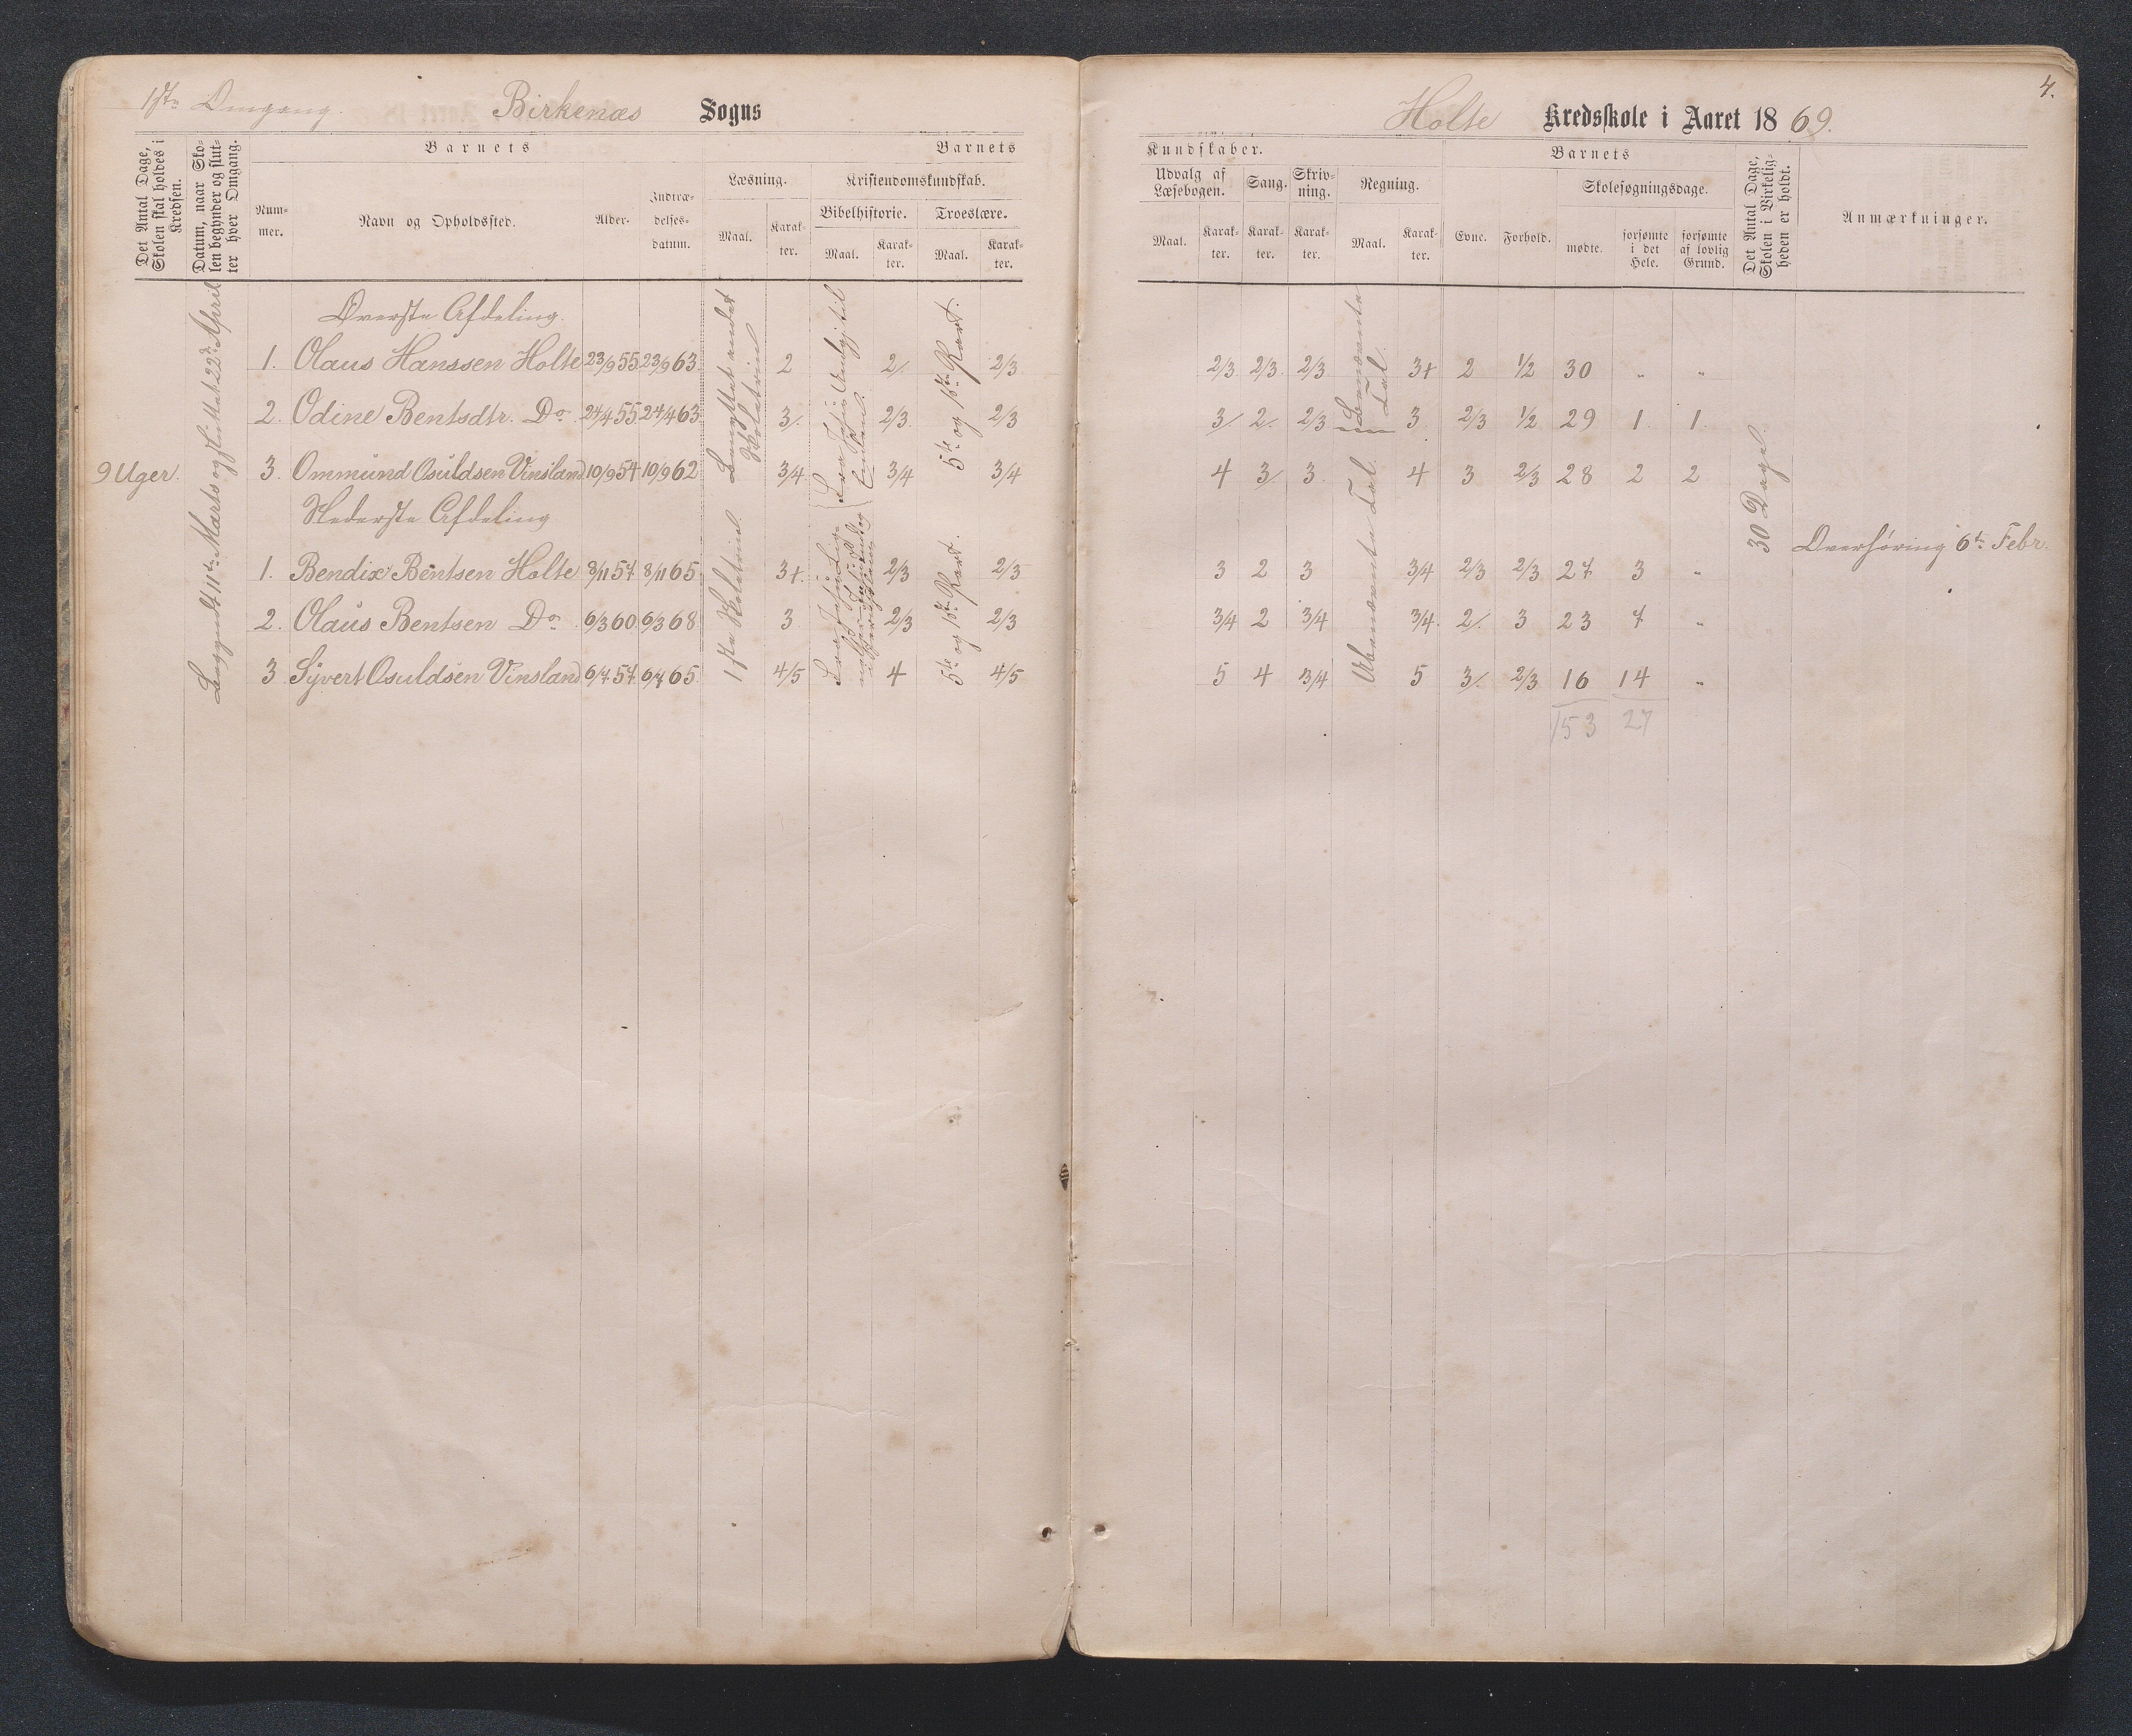 1ste Omgang.
Birkenæs Sogns
Det Antal Dage, Skolen skal holdes i Kredsen.
Datum, naar Skolen begynder og slutter hver Omgang.
Barnets
Nummer.
Navn og Opholdssted.
Alder.
Indtrædelsesdatum.
Barnets
Læsning.
Maal.
Karakter.
Kristendomskundskab.
Bibelhistorie.
Maal.
Karakter.
Troeslære.
Maal.
Karakter.
9 Uger.
Begyndt 11te Marts og sluttet 22de April
Øverste Afdeling.
1. Olaus Hanssen Holte 23/9 55 23/9 63 2 2/. 2/3
2. Odine Bentsdtr. Do 24/4 55 24/4 63 3/. 2/3 2/3
3. Ommund Osuldsen Vinsland 10/9 54 10/9 62 3/4 3/4 3/4
Nederste Afdeling
1. Bendix Bentsen Holte 8/11 57 8/11 65 3+ 2/3 2/3
2. Olaus Bentsen Do 6/3 60 6/3 68 3 2/3 2/3
3 Syvert Osuldsen Vinsland 6/7 57 6/7 65 4/5 4 4/5
Benyttet andet Skoletrin
1ste Skoletrin
5te og 1ste Part.
5te og 1ste Part.
4.
Holte Kredsskole i Aaret 1869.
Kundskaber.
Udvalg af Læsebogen.
Maal.
Karakter.
Sang.
Karakter.
Skrivning.
Karakter.
Regning.
Maal.
Karakter.
Barnets
Evne.
Forhold.
Skolesøgningsdage.
mødte.
forsømte i det Hele.
forsømte af lovlig Grund.
Det Antal Dage, Skolen i Virkeligheden er holdt.
Anmærkninger.
2/3 2/3 2/3 3+ 2 1/2 30 " "
3/ 2/. 2/3 3 2/3 1/2 29 1 1
4 3/. 3 4 3 2/3 28 2 2
3 2 3 3/4 2/3 2/3 27 3 "
3/4 2 3/4 3/4 2/. 3 23 7 "
5 4 3/4 5 3/. 2/3 16 14 "
153 27
Benævnte Tal
Ubenævnte Tal.
30 Dage.
Overhøring 6te Febr.